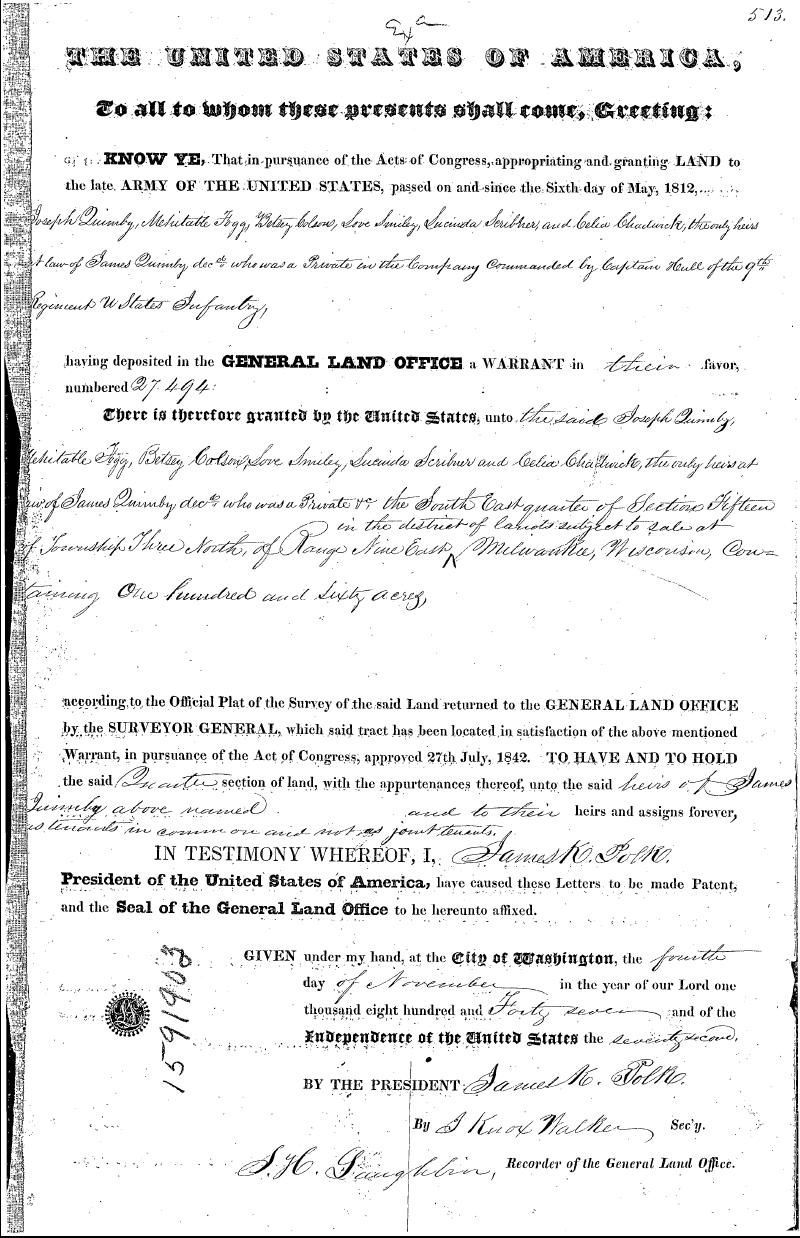 513.
Exa
THE UNITED STATES OF AMERICA,
To all to whom these presents shall come, Greeting:
KNOW YE, That in pursuance of the Acts of Congress, appropriating and granting LAND to
the late ARMY OF THE UNITED STATES, passed on and since the Sixth day of May, 1812,
Joseph Quimby, Mehitable Fogg, Betsey Colson, Love Smiley, Lucinda Scribner, and Celia Chadwick, the only heirs
at law of James Quimby decd. who was a Private in the Company commanded by Captain Hull of the 9th
Regiment U States Infantry,
having deposited in the GENERAL LAND OFFICE a WARRANT in their favor,
numbered 27.494:
There is therefore granted by the United States, unto the said Joseph Quimby,
Mehitable Fogg, Betsey Colson, Love Smiley, Lucinda Scribner and Celia Chadwick, the only heirs at
law of James Quimby decd. who was a Private &c. the South East quarter of Section Fifteen
in the district of lands subject to sale at
of Township Three North, of Range Nine East ^ Milwaukie, Wisconson, Con=
taining One hundred and sixty acres,
according to the Official Plat of the Survey of the said Land returned to the GENERAL LAND OFFICE
by the SURVEYOR GENERAL, which said tract has been located in satisfaction of the above mentioned
Warrant, in pursuance of the Act of Congress, approved 27th July, 1842. TO HAVE AND TO HOLD
the said Quarter section of land, with the appurtenances thereof, unto the said heirs of James
Quimby above named and to their heirs and assigns forever,
as tenants in common and not as joint tenants.
IN TESTIMONY WHEREOF, I, James K. Polk.
President of the United States of America, have caused these Letters to be made Patent,
and the Seal of the General Land Office to be hereunto affixed.
GIVEN under my hand, at the City of Washington, the fourth
day of November in the year of our Lord one
thousand eight hundred and Forty seven and of the
Independence of the United States the seventy second.
1591903
BY THE PRESIDENT: James K. Polk.
By J Knox Walker Sec'y.
S. H. Laughlin, Recorder of the General Land Office.